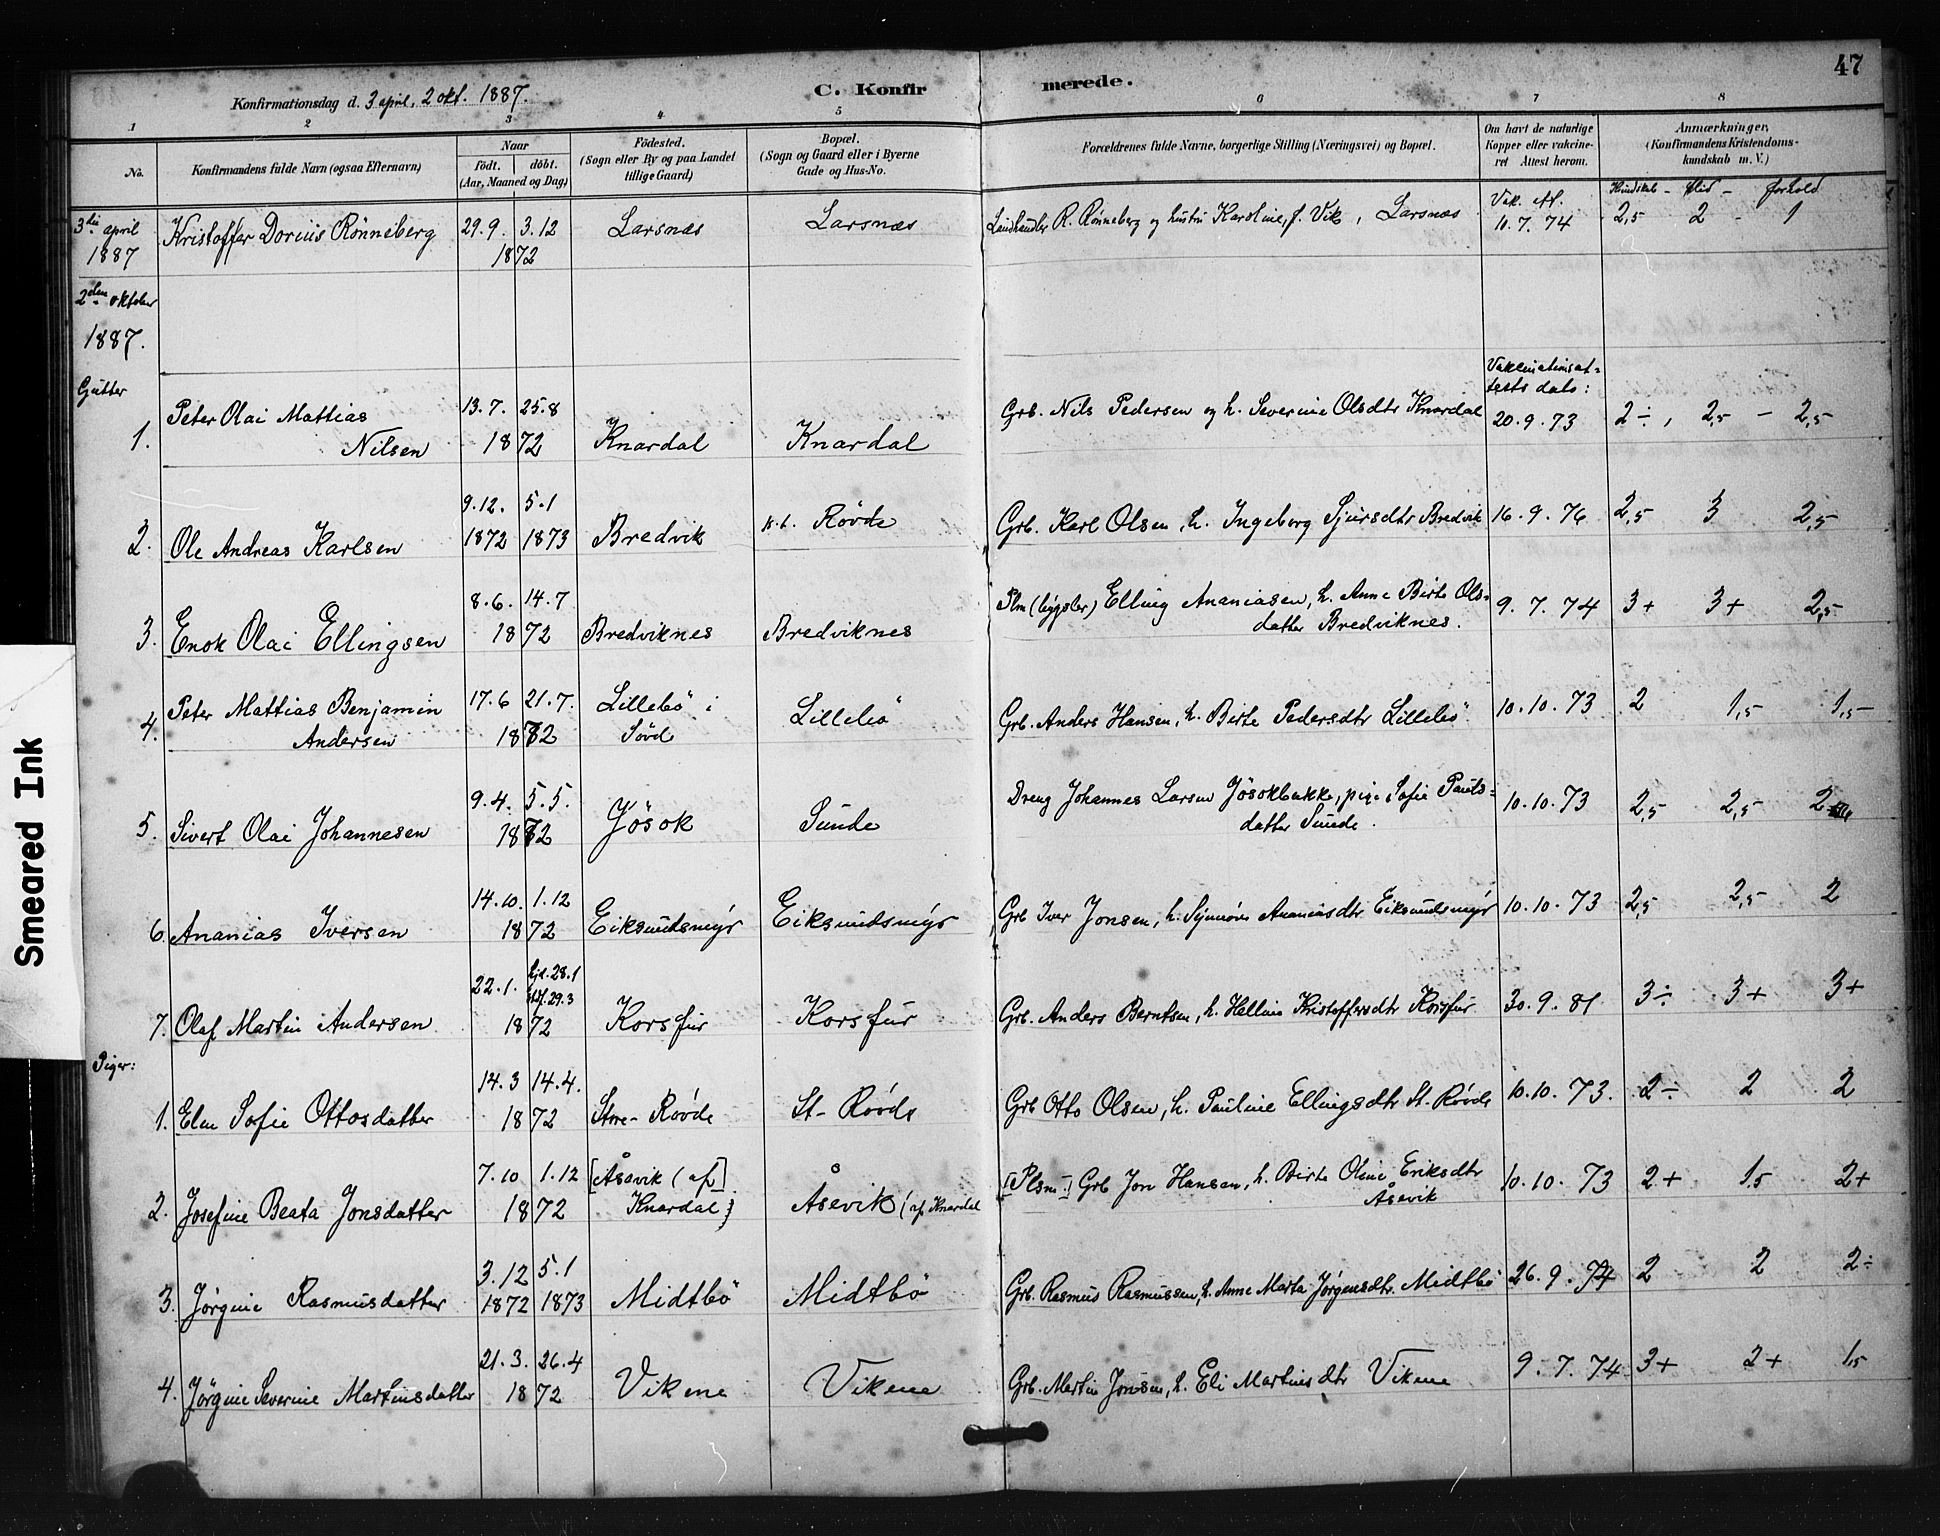 47
Konfirmationsdag d. 3 april, 2 okt. 1887.
C. Konfirmerede.
1 2 3 4 5 6 7 8
No.
Konfirmandens fulde Navn (ogsaa Efternavn)
Naar
födt. döbt.
(Aar, Maaned og Dag)
Födested.
(Sogn eller By og paa Landet
tillige Gaard)
Bopæl.
(Sogn og Gaard eller i Byerne
Gade og Hus-No.
Forældrenes fulde Navne, borgerlige Stilling (Næringsvei) og Bopæl.
Om havt de naturlige
Kopper eller vakcine-
ret Attest herom.
Anmærkninger,
(Konfirmandens Kristendoms-
kundskab m. V.)
Kundskab - flid - forhold
3die april Kristoffer Dorius Rönneberg 29.9. 3.12 Larsnæs Larsnæs Landhandler R. Rønneberg og hustru Karoline, f. Vik, Larsnæs Vak. At. 10.7.74 2,5 2 - 1
1887 1872
2den oktober
1887.
Gutter
Vakcinationsat-
tests dato:
1. Peter Olai Mattias 13.7. 25.8 Knardal Knardal Grb. Nils Pedersen og h. Severine Olsdtr Knardal 20.9.73 2÷, 2,5 - 2,5
Nilsen 1872
2. Ole Andreas Karlsen 9.12. 5.1 Bredvik Røvde Grb. Karl Olsen, h. Ingeborg Sjursdtr Bredvik 16.9.76 2,5 3 2,5
1872 1873
3. Enok Olai Ellingsen 8.6. 14.7 Bredviknes Bredviknes Plm Elling Ananiasen, h. Anne Birte Ols-
1872 datter Bredviknes. 9.7.74 3+ 3+ 2,5
4. Peter Mattias Benjamin 17.6 21.7. Lillebö i Lillebö Grb. Anders Hansen, h. Birte Pedersdtr Lillebö 10.10.73 2 1,5 1,5-
Andersen 1872 Søvd
5. Sivert Olai Johannesen 9.4. 5.5. Jösok Sunde Dreng Johannes Larsen Jösokbakke, pige Sofie Pauls-
1872 datter Sunde. 10.10.73 2,5 2,5 2
6. Ananias Iversen 14.10. 1.12 Eiksundsmyr Eiksundsmyr Grb Iver Jonsen, h. Synnøve Ananiasdtr Eiksundsmyr 10.10.73 2,5 2,5 2
1872
7. Olaf Martin Andersen 22.1. hjd. 28.1 Korsfur Korsfur Grb. Anders Berntsen, h. Helline Kristoffersdtr Korsfur 30.9.81 3÷ 3+ 3+
29.3
1872
Piger:
1. Elen Sofie Ottosdatter 14.3 14.4. Store-Røvde St-Røvde Grb Otto Olsen, h. Pauline Ellingsdtr St. Røvde 10.10.73. 2÷ 2 2
1872
2. Josefine Beata Jonsdatter 7.10 1.12 [Åsevik (af] Åsevik (af Knardal [Plsm.] Grb Jon Hansen, h. Birte Oline Eriksdtr 10.10.73 2+ 1,5 2+
1872 Knardal) Åsevik
3. Jørgine Rasmusdatter 3.12 5.1 Midtbö Midtbö Grb. Rasmus Rasmussen, h. Anne Marta Jørgensdtr. Midtbö 26.9.74 2 2 2÷
1872 1873
4. Jørgine Severine Martinusdatter 21.3. 26.4 Vikene Vikene Grb. Martin Jonsen, h. Eli Martinisdtr Vikene 9.7.74 3+ 2+ 1,5
1872
Smeared Ink